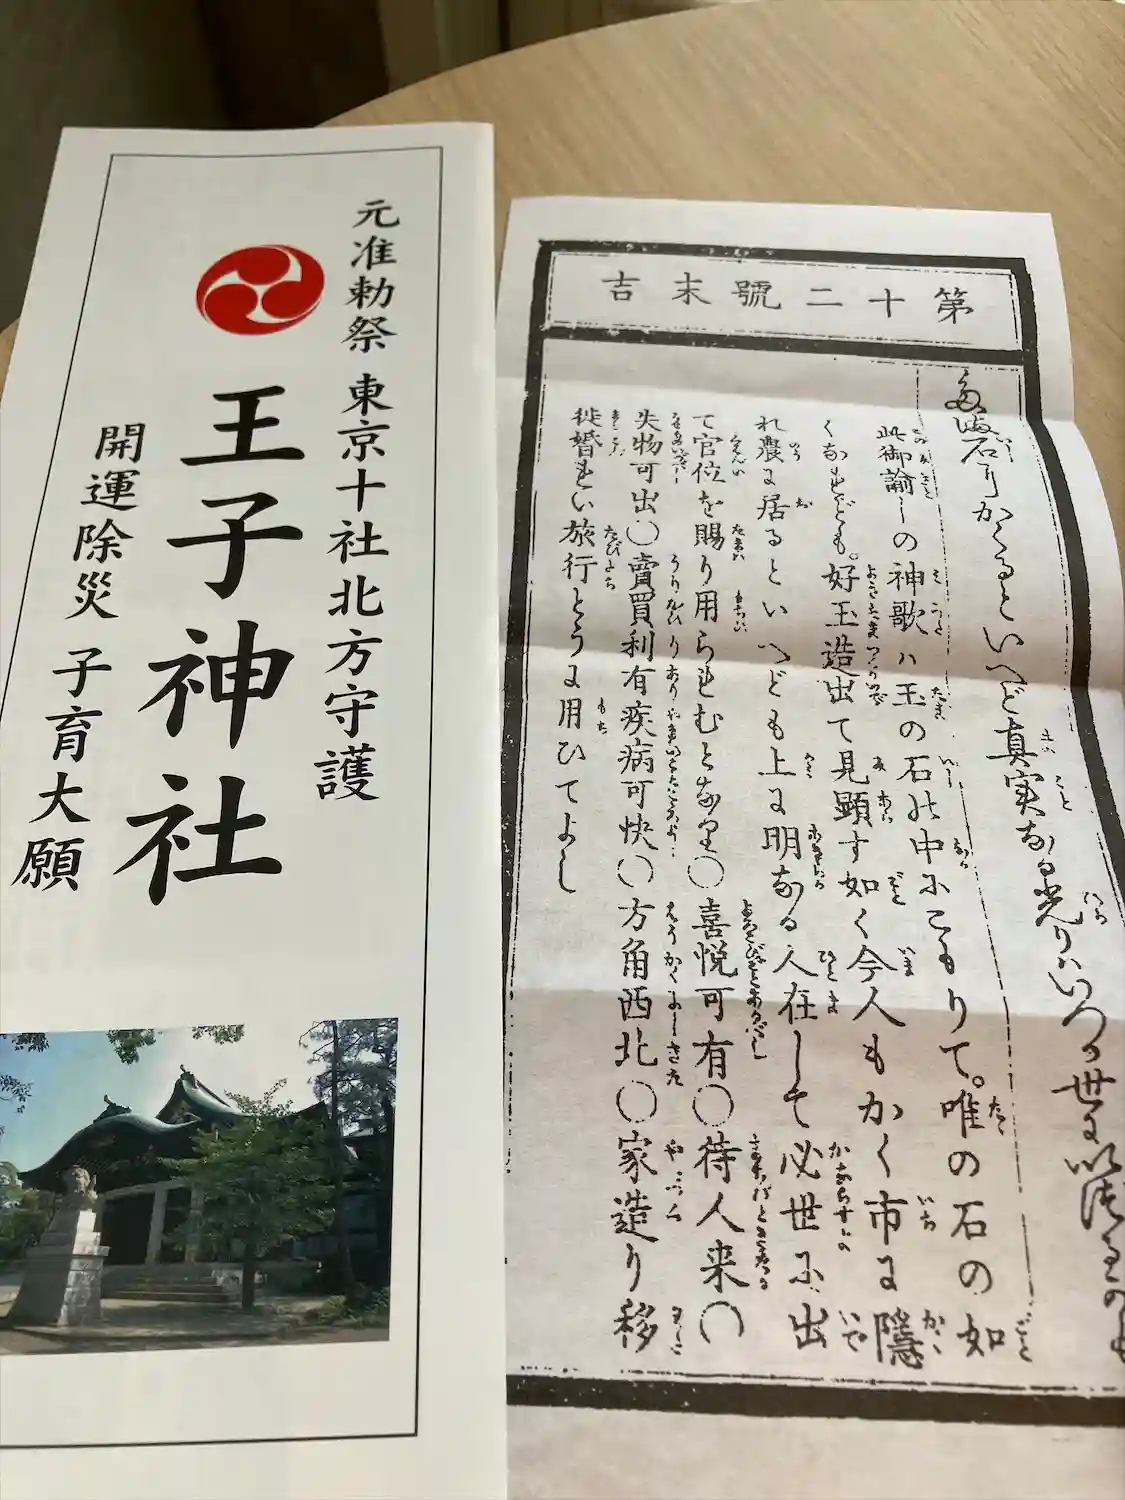 元准勅祭 東京十社北方守護
王子神社
開運除災 子育大願
第十二號末吉
石にかくるといへど真実なる光りハいつか世に
此御諭しの神歌ハ玉の石の中にこもりて。唯の石の如
くなれども。好玉造出て見顕す如く今人もかく市に隠
れ農に居るといへども上に明なる人在して必世に出
て官位を賜り用られむとなり〇喜悦可有〇待人来〇
失物可出〇賣買利有疾病可快〇方角西北〇家造り移
徙婚禮旅行とうに用ひてよし